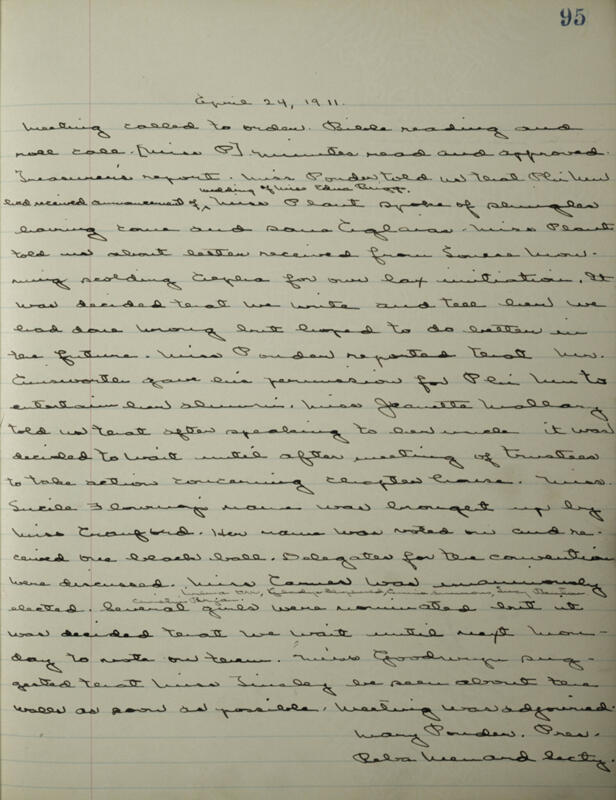 95
April 24, 1911.
Meeting called to order. Bible reading and
roll call. [Miss P] Minutes read and approved.
Treasurer's report. Miss Ponder told us that Phi Mu
wedding of Miss Edna
had received announcement of Miss Plant spoke of shingles
having come and Miss Plant
told us about letter received from Louese Mon-
ning scolding Alpha for our lax initiation. It
was decided that we write and tell her we
had done wrong but hoped to do better in
the future. Miss Ponder reported that Mr.
Ainsworth gave his permission for Phi Mu to
entertain her alumnae. Miss Jeanette Mallary
told us that after speaking to her uncle it was
decided to wait until after meeting of trustees
to take action concerning chapter house. Miss
Lucile name was brought up by
Miss Crawford. Her name was voted on and re-
ceived one black ball. Delegates for the convention
were discussed. Miss was unanimously
Orr, Gladys
elected. Several girls were nominated but it
was decided that we wait until next Mon-
day to vote on them. Miss Goodwyn sug-
gested that Miss Tinsley be seen about the
walls as soon as possible. Meeting was adjourned.
Mary Ponder. Pres.
Reba Menard secty.